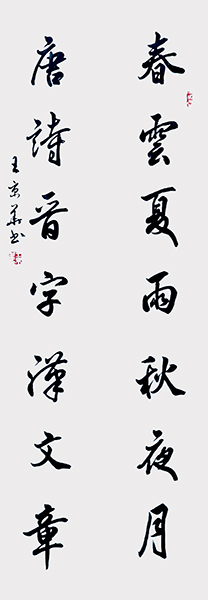 春雲夏雨秋夜月
唐詩晉字漢文章
王京華书